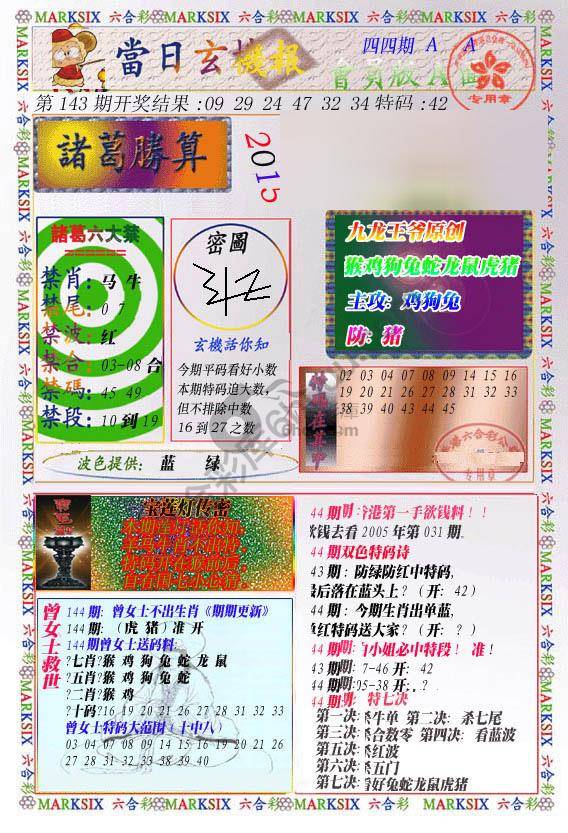 MARKSIX 六合彩 MARKSIX 六合彩 MARKSIX 六合彩 MARKSIX 六合彩
當日玄機報
四四期 A A
會員版A面
专用章
第 143 期开奖结果:09 29 24 47 32 34 特码:42
諸葛勝算
2015
諸葛六大禁
禁肖: 马 牛
禁尾: 0 7
禁波: 红
禁合: 03-08 合
禁碼: 45 49
禁段: 10 到 19
密圖
玄機活你知
今期平码看好小数
本期特码追大数,
但不排除中数
16 到 27 之数
九龙王爷原创
猴鸡狗兔蛇龙鼠虎猪
主攻: 鸡狗兔
防: 猪
02 03 04 07 08 09 14 15 16
19 20 21 26 27 28 31 32 33
38 39 40 43 44 45
专用章
波色提供: 蓝 绿
宝莲灯传密
曾女士救世
144 期: 曾女士不出生肖《期期更新》
144 期: (虎 猪) 准 开
144期曾女士送码料:
?七肖?猴 鸡 狗 兔 蛇 龙 鼠
?五肖?猴 鸡 狗 兔 蛇
?二肖?猴 鸡
?十码?16 19 20 21 26 27 28 31 32 33
曾女士特码大范围﹝十中八﹞
03 04 07 08 09 14 15 16 19 20 21 26
27 28 31 32 33 38 39 40
44 期: 香港第一手欲钱料!!
欲钱去看 2005 年第 031 期
44 期双色特码诗
43 期: 防绿防红中特码,
最后落在蓝头上? (开: 42)
44 期: 今期生肖出单蓝,
单红特码送大家? (开: ?)
白小姐必中特段! 准!
43 期: 7-46 开: 42
44 期: 05-38 开: ?
44 期: 特七决
第一决: 杀牛单 第二决: 杀七尾
第三决: 杀合数零 第四决: 看蓝波
第五决: 杀红波
第六决: 杀五门
第七决: 看好兔蛇龙鼠虎猪
MARKSIX 六合彩 MARKSIX 六合彩 MARKSIX 六合彩 MARKSIX 六合彩